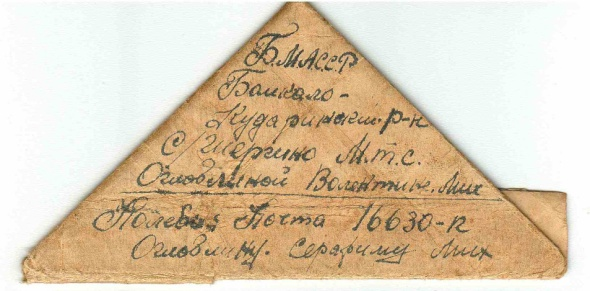 Б.МАССР
Байкало-
Кударинским. р-н
С/Шергино М.т.с.
Огловлиной Валентине. Мих
Полевая Почта 16630-к
Огловлину. Серафиму Мих